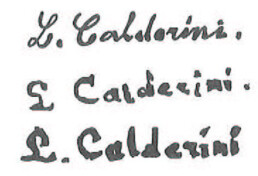 L. Calderini.
L Calderini.
L. Calderini